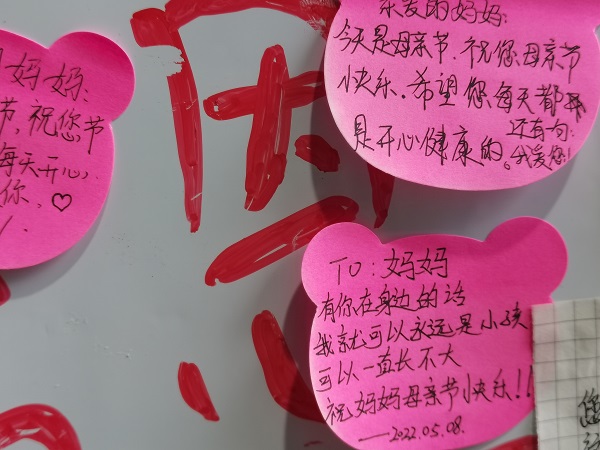 妈妈:
节,祝您节
每天开心
你,♡
亲爱的妈妈:
今天是母亲节.祝您母亲节
快乐.希望您每天都
是开心健康的。还有一句:
我爱您!
恩
TO:妈妈
有你在身边的话
我就可以永远是小孩
可以一直长不大
祝妈妈母亲节快乐!!
——2022.05.08.
您